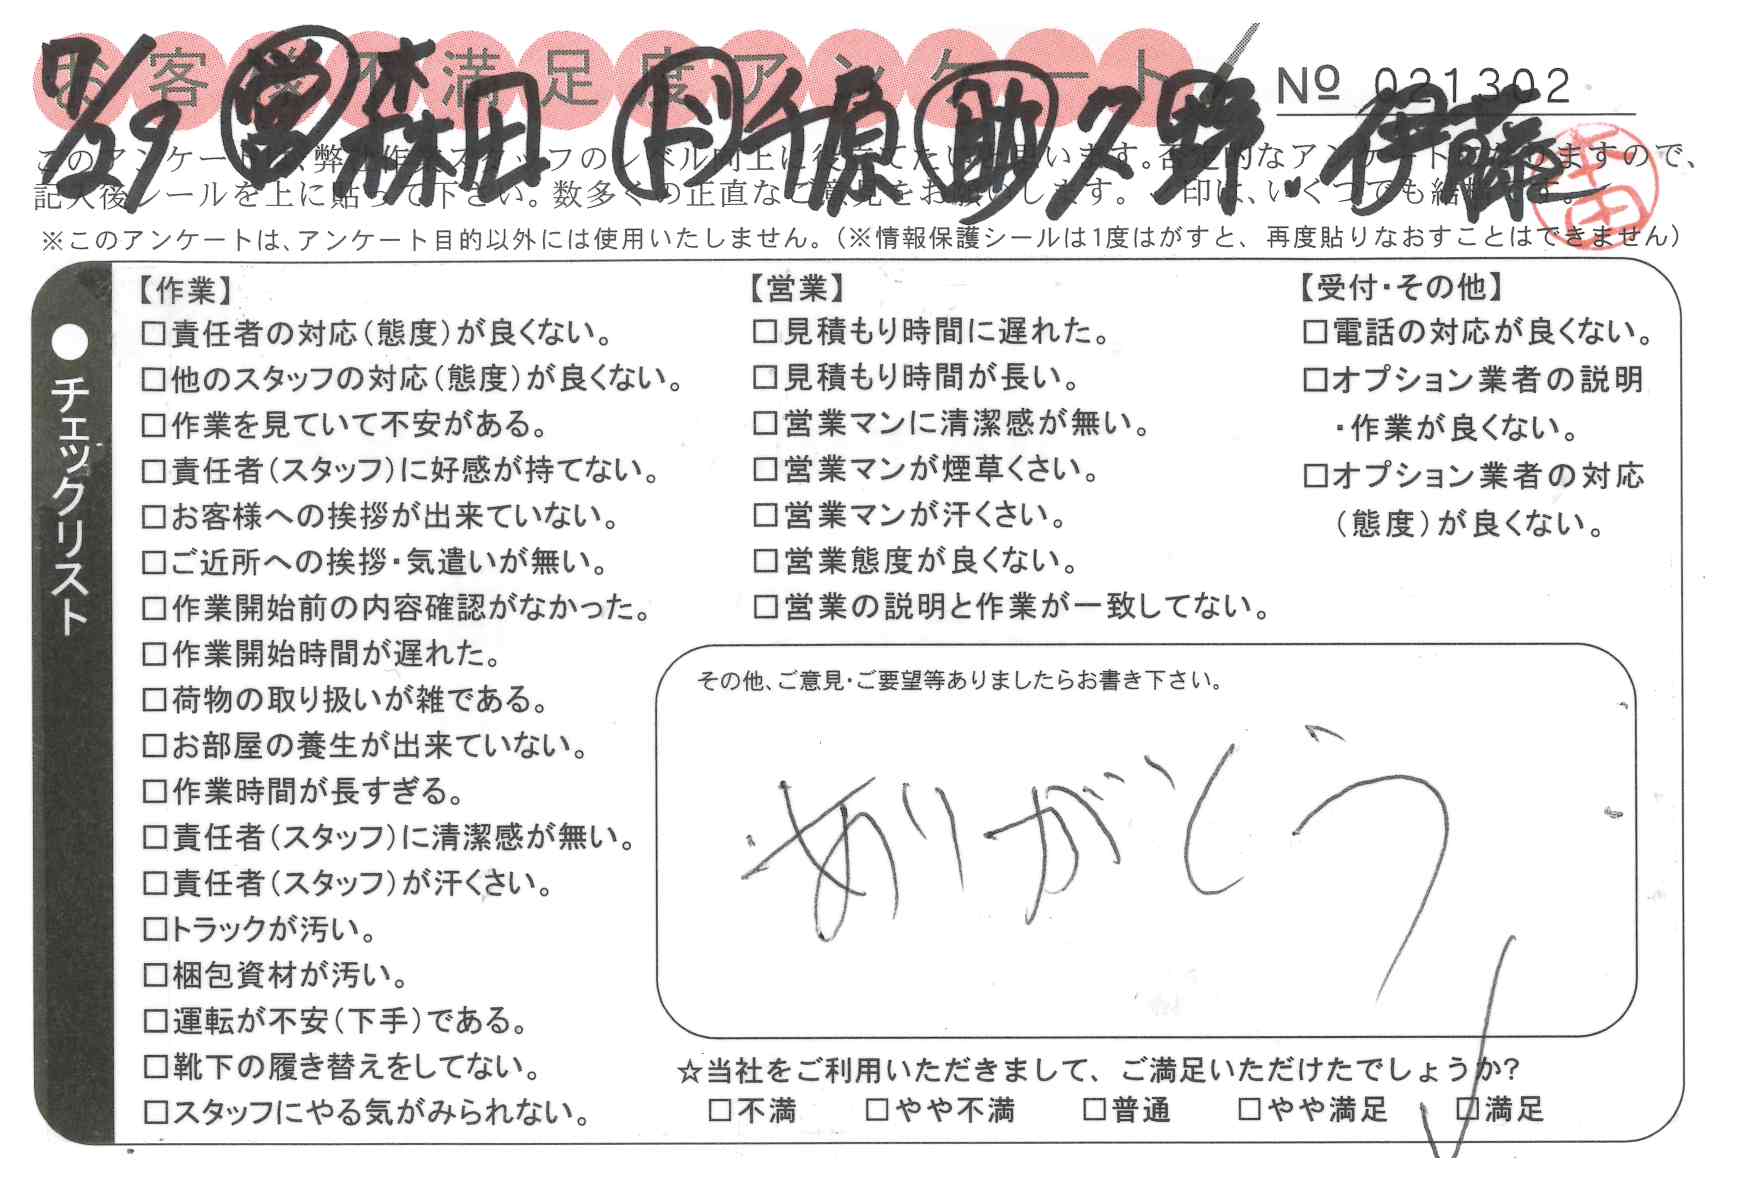 お客様不満足度アンケート
№ 021302
11/29 営 森田 ド 千原 助 久野・伊藤
このアンケートは、弊社作業スタッフのレベル向上に役立てたいと思います。否定的なアンケートになりますので、
記入後シールを上に貼って下さい。数多くの正直なご意見をお願いします。✓印は、いくつでも結構です。
※このアンケートは、アンケート目的以外には使用いたしません。(※情報保護シールは1度はがすと、再度貼りなおすことはできません)
●チェックリスト
【作業】
□責任者の対応(態度)が良くない。
□他のスタッフの対応(態度)が良くない。
□作業を見ていて不安がある。
□責任者(スタッフ)に好感が持てない。
□お客様への挨拶が出来ていない。
□ご近所への挨拶・気遣いが無い。
□作業開始前の内容確認がなかった。
□作業開始時間が遅れた。
□荷物の取り扱いが雑である。
□お部屋の養生が出来ていない。
□作業時間が長すぎる。
□責任者(スタッフ)に清潔感が無い。
□責任者(スタッフ)が汗くさい。
□トラックが汚い。
□梱包資材が汚い。
□運転が不安(下手)である。
□靴下の履き替えをしてない。
□スタッフにやる気がみられない。
【営業】
□見積もり時間に遅れた。
□見積もり時間が長い。
□営業マンに清潔感が無い。
□営業マンが煙草くさい。
□営業マンが汗くさい。
□営業態度が良くない。
□営業の説明と作業が一致してない。
【受付・その他】
□電話の対応が良くない。
□オプション業者の説明
・作業が良くない。
□オプション業者の対応
(態度)が良くない。
その他、ご意見・ご要望等ありましたらお書き下さい。
ありがとう
☆当社をご利用いただきまして、ご満足いただけたでしょうか?
□不満 □やや不満 □普通 □やや満足 □満足